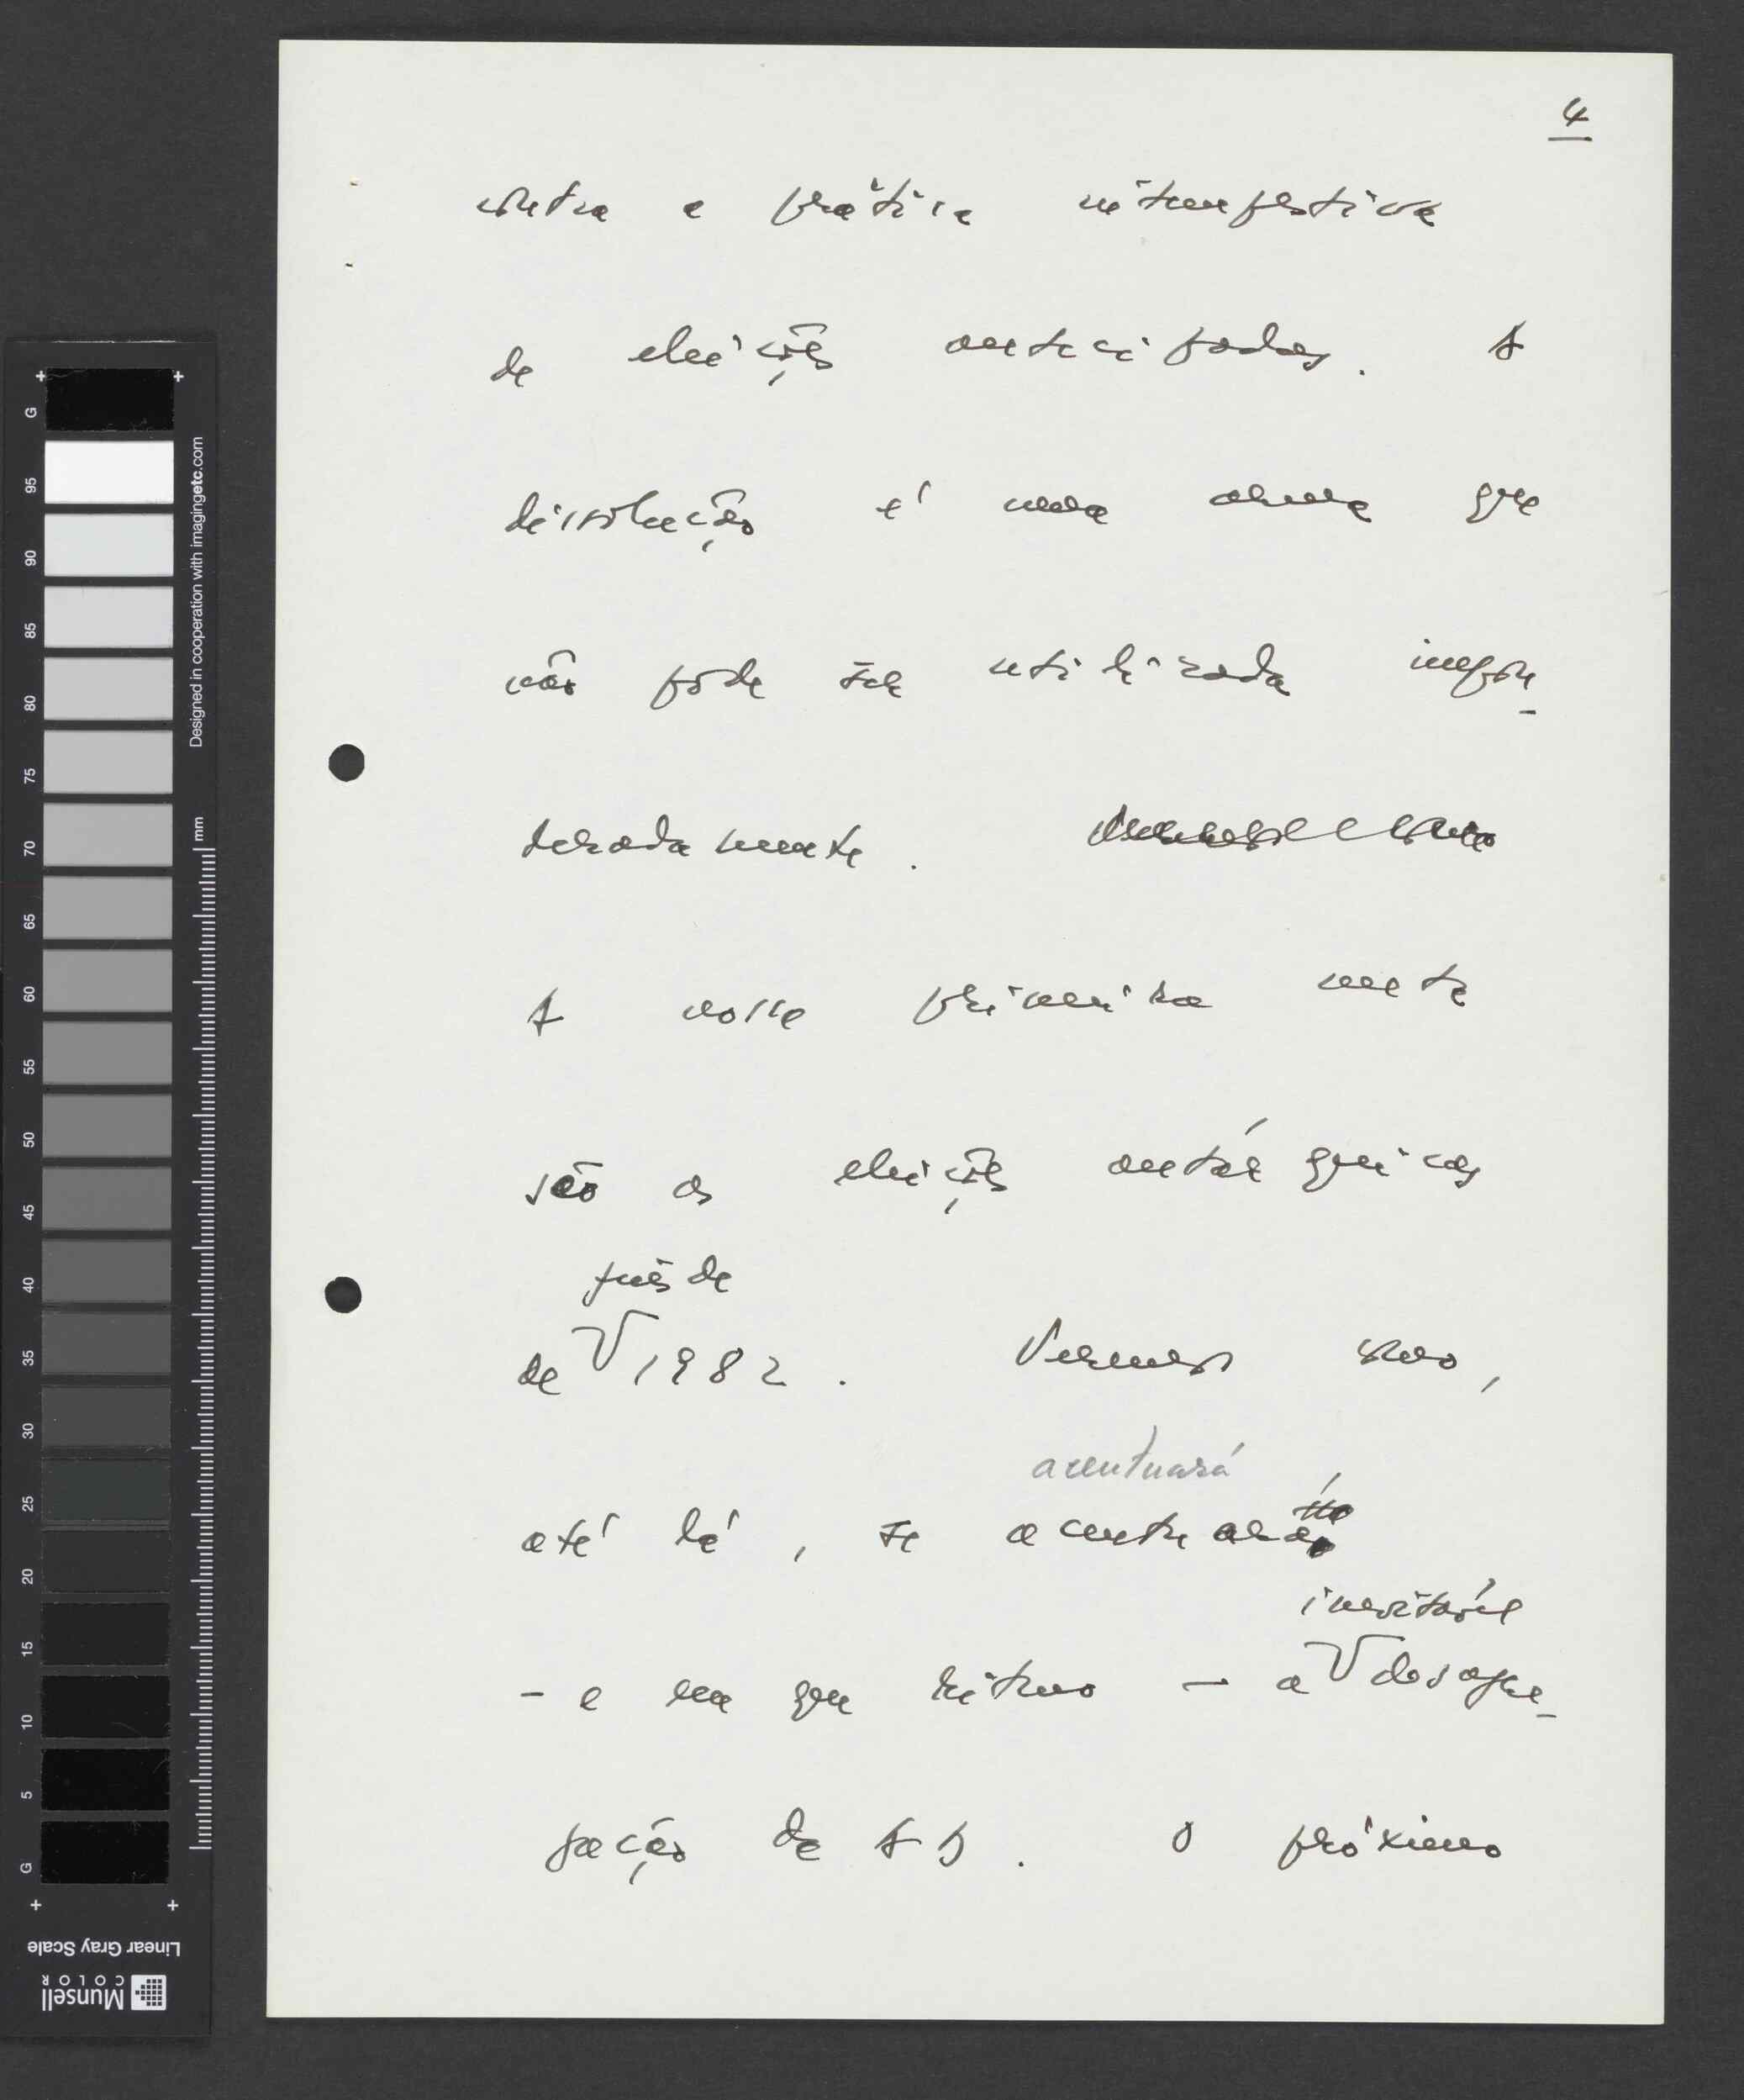 4
contra a prática intempestiva
de eleições antecipadas. A
dissolução é uma arma que
não pode ser utilizada inpon-
deradamente.
A nossa primeira meta
são as eleições autárquicas
fins de
de V 1982. Veremos como,
acentuará
até lá, se acentuará
inevitável
- e em que ritmo - a V desagre-
gação da AD. O próximo
G 95 90 85 80 75 70 65 60 55 50 45 40 35 30 25 20 15 10 5 G
Designed in cooperation with imagingetc.com
mm
Munsell
COLOR
Linear Gray Scale